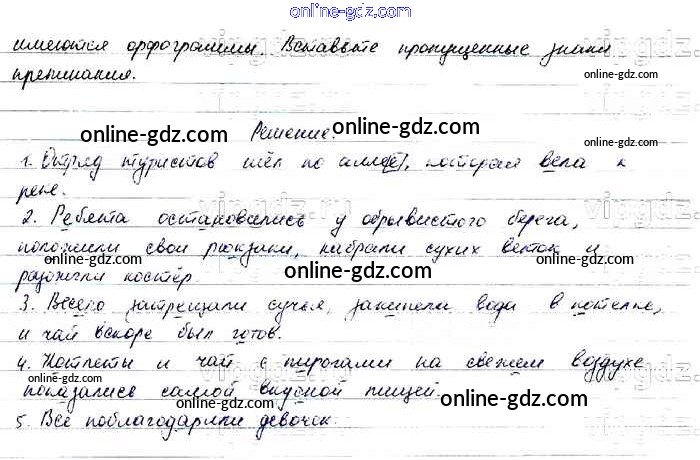 online-gdz.com
имеются орфограммы. Вставьте пропущенные знаки
препинания.
online-gdz.com
online-gdz.com
online-gdz.com
Решение.
online-gdz.com
1. Отряд туристов шёл по аллее, которая вела к
реке.
2. Ребята остановились у обрывистого берега,
положили свои рюкзаки, набрали сухих веток и
разожгли костёр.
online-gdz.com
online-gdz.com
online-gdz.com
3. Весело затрещали сучья, закипела вода в котелке,
и чай вскоре был готов.
4. Котлеты и чай с пирогами на свежем воздухе
online-gdz.com
online-gdz.com
показались самой вкусной пищей.
online-gdz.com
5. Все поблагодарили девочек.
online-gdz.com
online-gdz.com